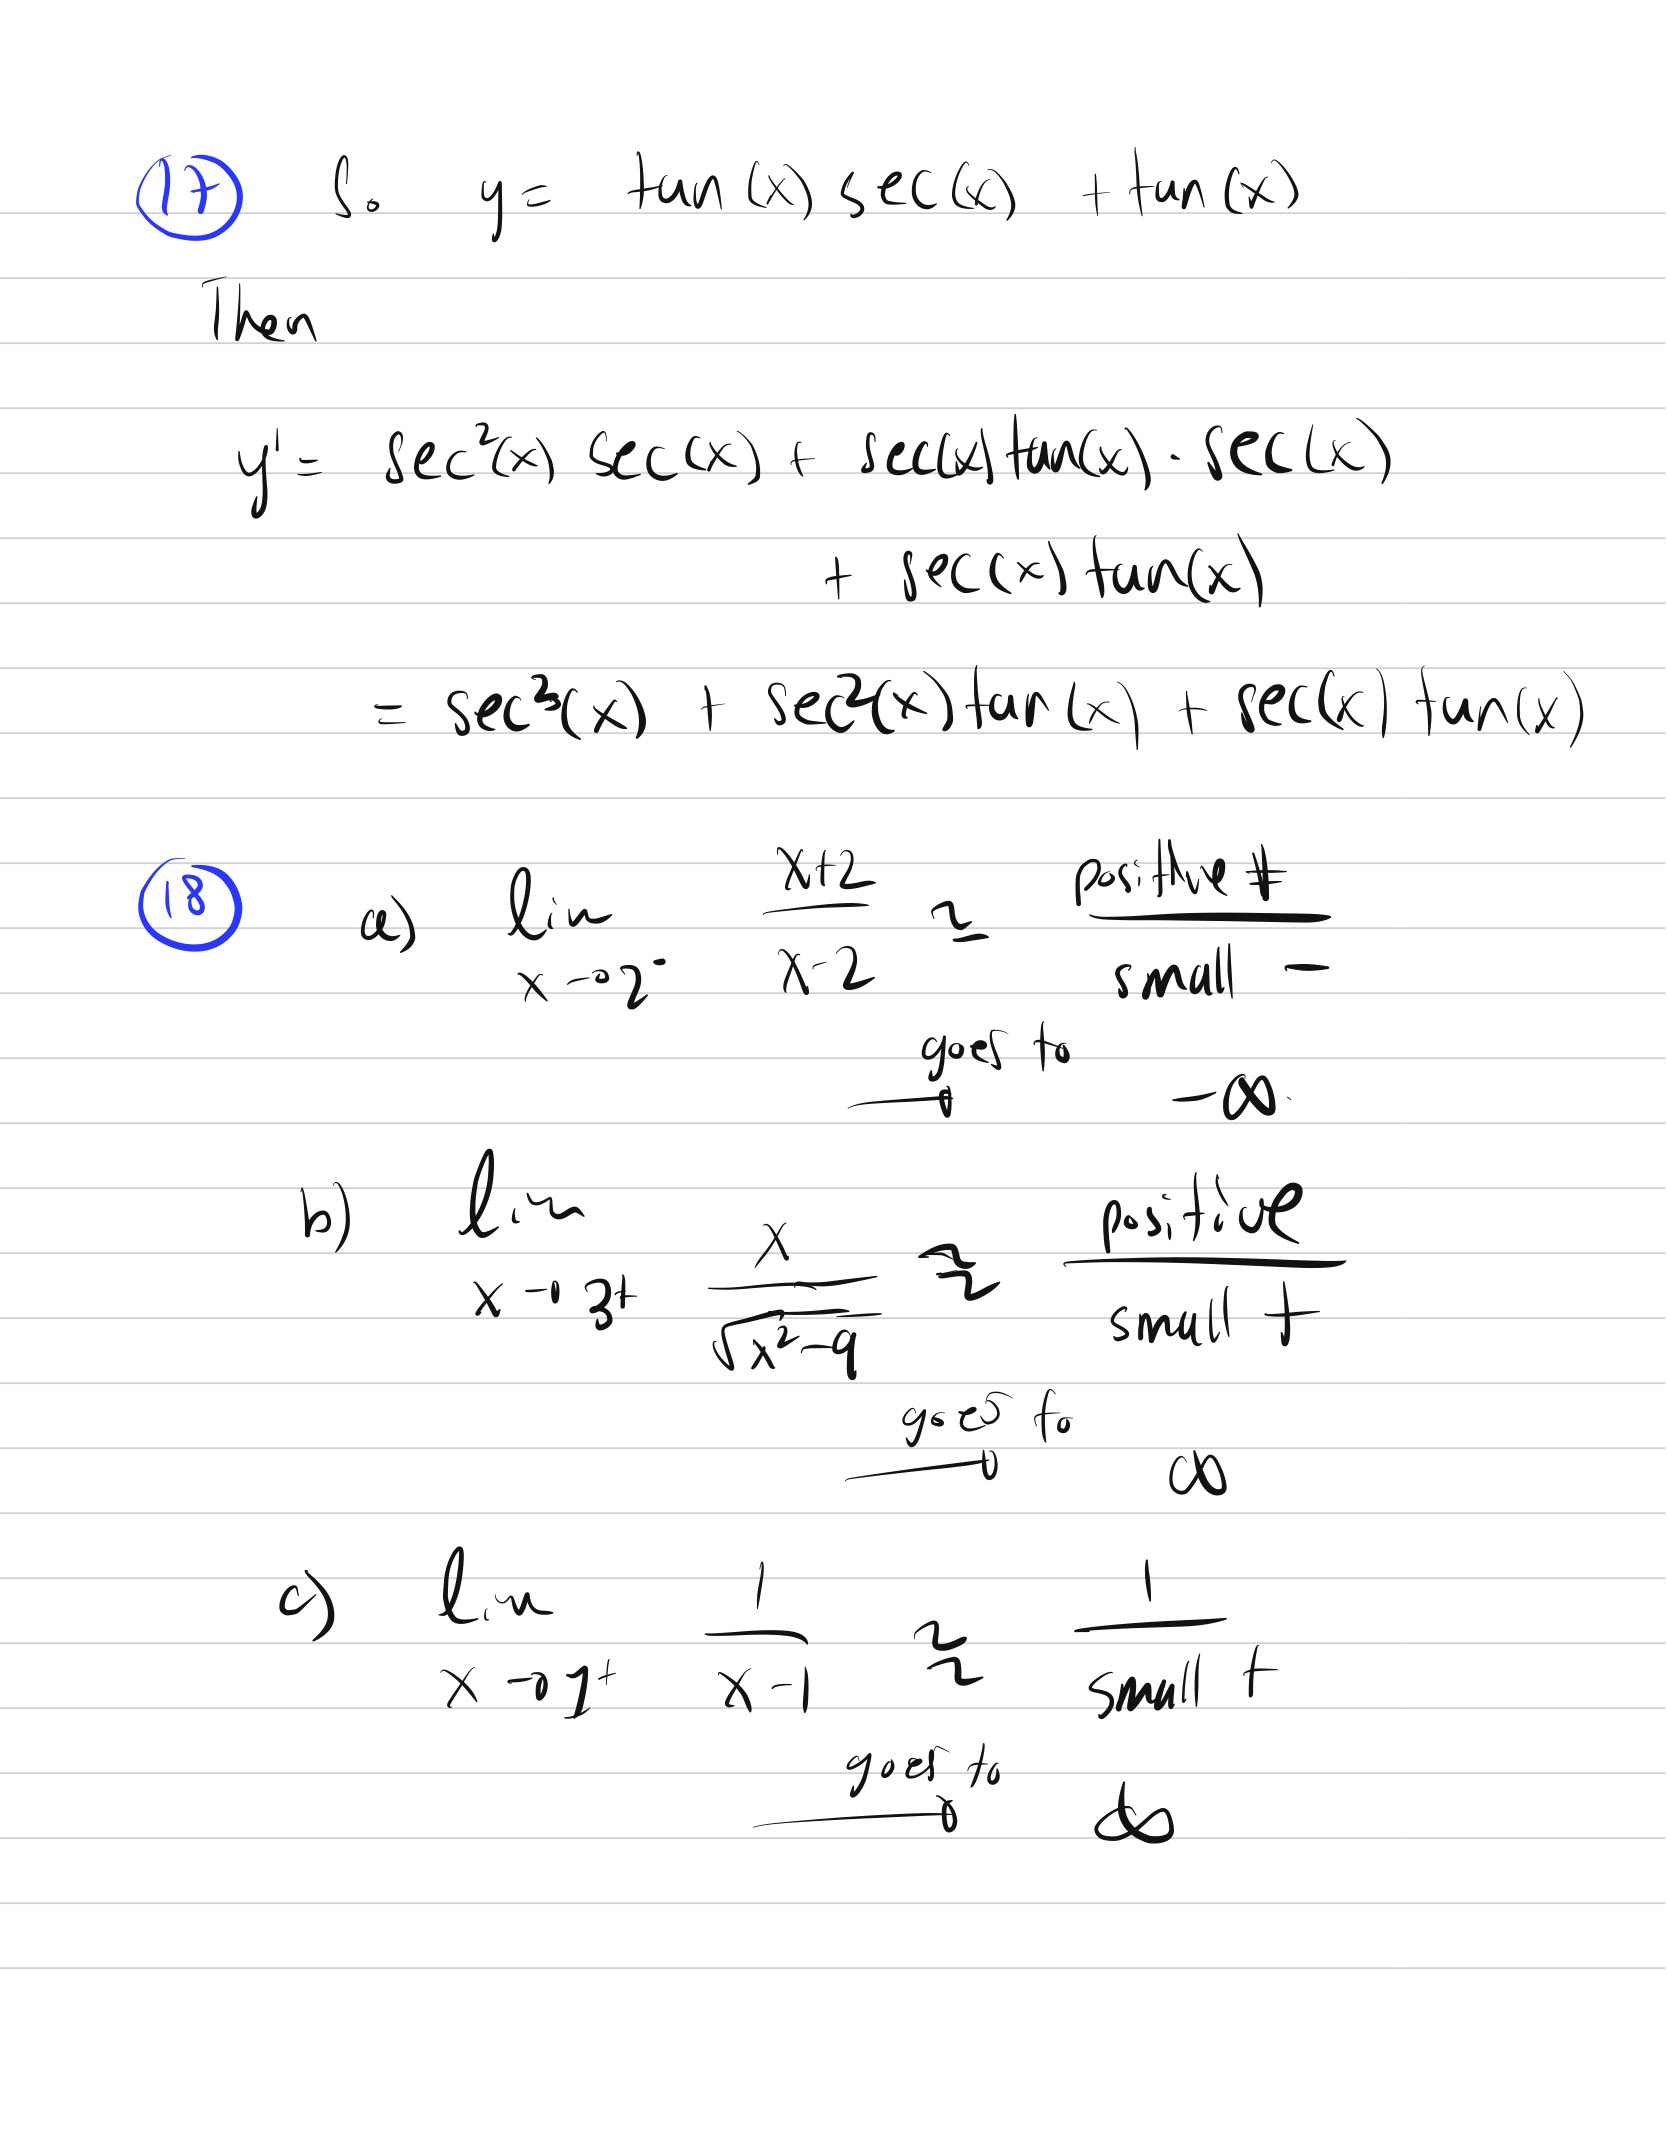 17 So y = tan(x) sec(x) + tan(x)
Then
y' = sec²(x) sec(x) + sec(x) tan(x) · sec(x)
+ sec(x) tan(x)
= sec³(x) + sec²(x) tan(x) + sec(x) tan(x)
18 a) lim x→2⁻ (x+2)/(x-2) ≃ positive #/small −
goes to
→ -∞.
b) lim x→3+ x/√(x²-9) ≈ positive/small +
goes to
→ ∞
c) lim x→1⁺ 1/(x-1) ≈ 1/small +
goes to
→ ∞